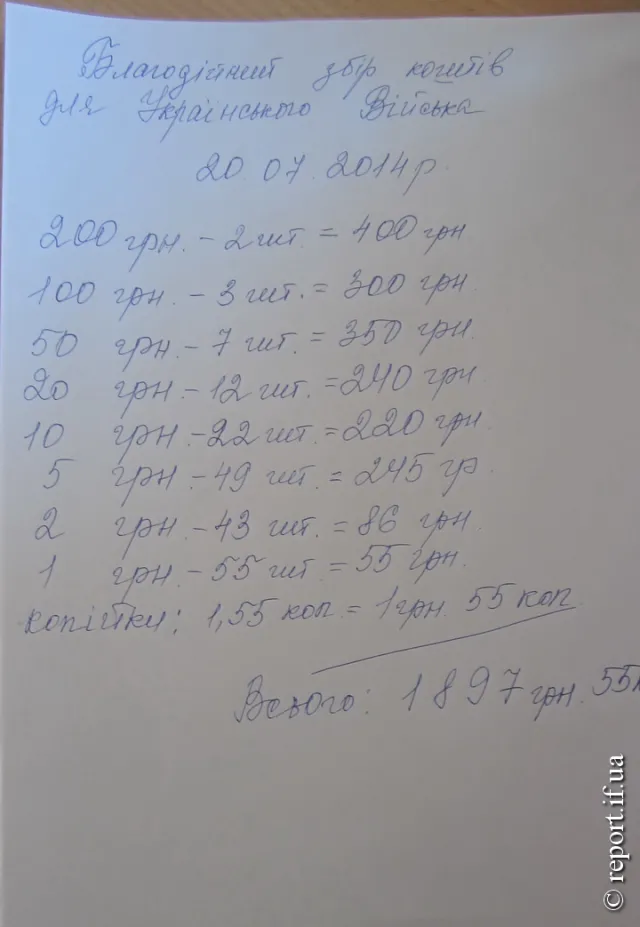 Благодійний збір коштів
для Українського Війська
20.07.2014р.
200 грн. - 2 шт. = 400 грн
100 грн. - 3 шт. = 300 грн.
50 грн. - 7 шт. = 350 грн.
20 грн - 12 шт. = 240 грн
10 грн - 22 шт. = 220 грн.
5 грн - 49 шт. = 245 гр.
2 грн. - 43 шт. = 86 грн.
1 грн. - 55 шт = 55 грн.
копійки: 1,55 коп. = 1 грн. 55 коп
Всього: 1897 грн. 55к
© report.if.ua